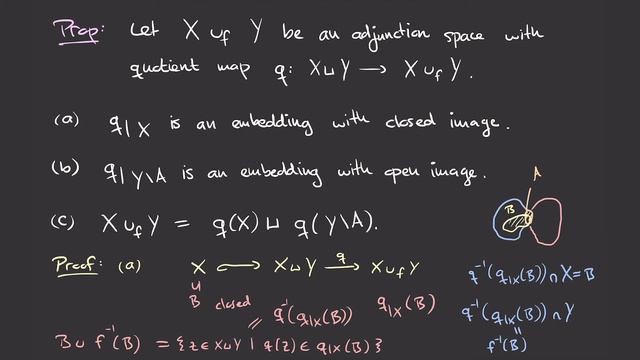 Prop: Let X ∪f Y be an adjunction space with
quotient map q: X⊔Y → X ∪f Y.
(a) q|X is an embedding with closed image.
(b) q|Y\A is an embedding with open image.
(c) X ∪f Y = q(X) ⊔ q(Y\A).
A
B
Proof: (a) X ↪ X⊔Y →q X ∪f Y
q⁻¹(q|X(B)) ∩ X = B
∪
B closed q⁻¹(q|X(B)) q|X(B)
q⁻¹(q|X(B)) ∩ Y
=
f⁻¹(B)
B ∪ f⁻¹(B) = {z ∈ X⊔Y | q(z) ∈ q|X(B)}